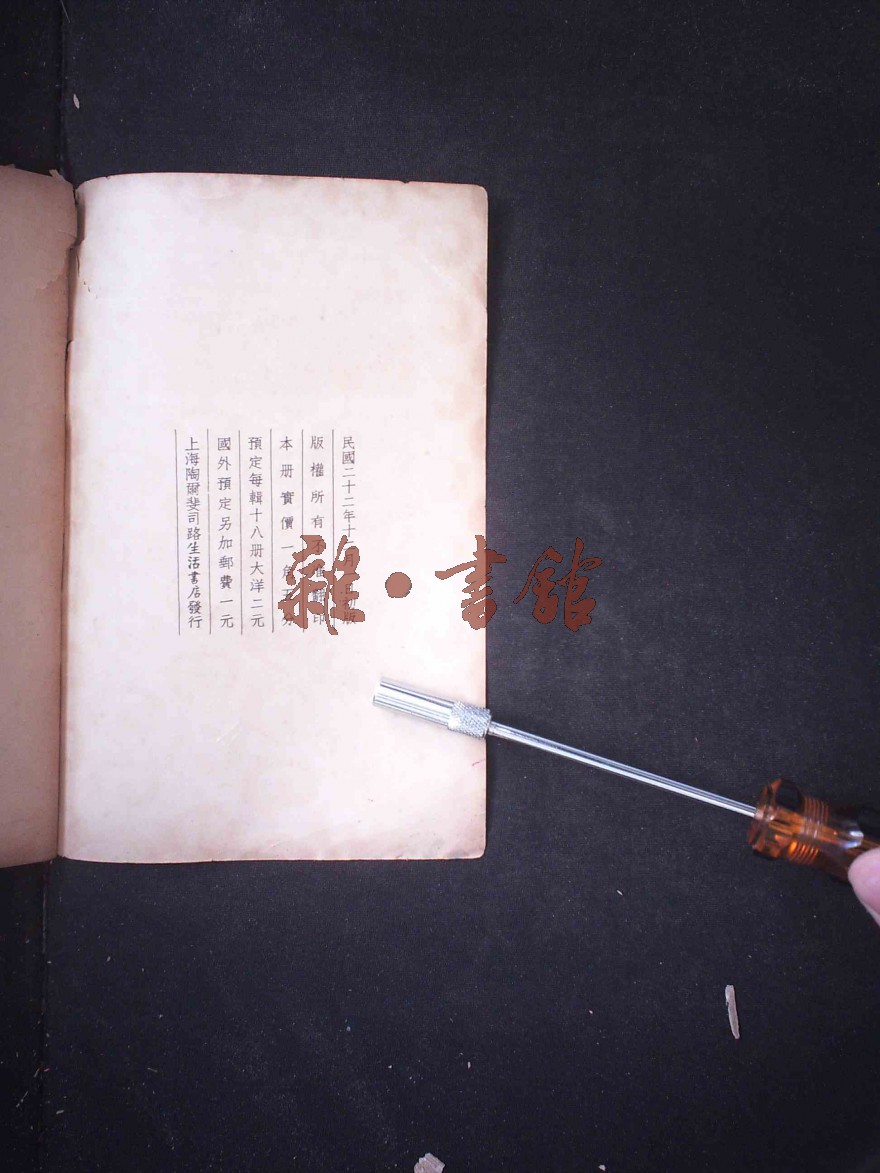 民國二十二年十 初版
版權所有不 翻印
本册實價一角五分
預定每輯十八册大洋二元
國外預定另加郵費一元
上海陶爾斐司路生活書店發行
雜·書館